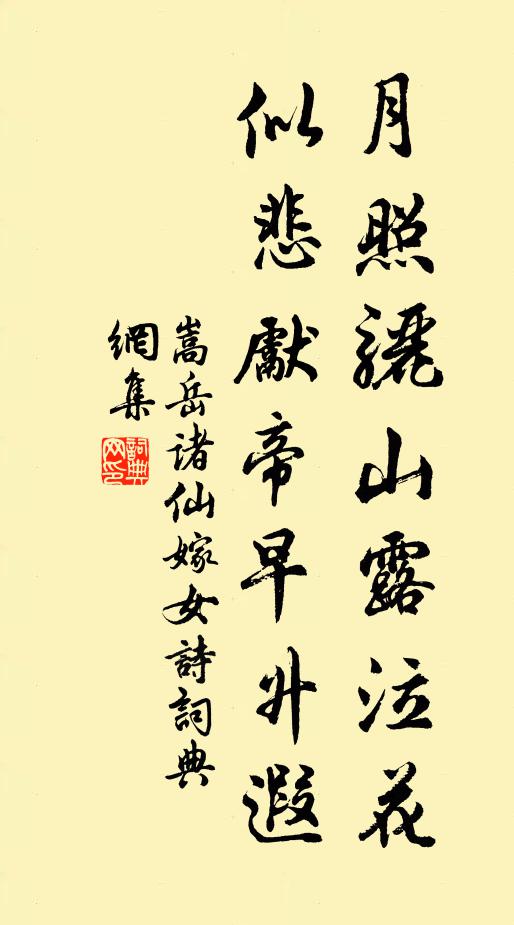 月照驪山露泣花
似悲獻帝早升遐
嵩岳諸仙嫁女詩詞典
網集
詞典
网印